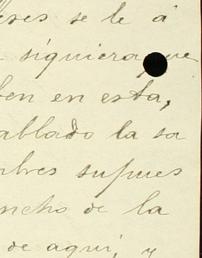 eses se le á
siquiera que
ben en esta,
ablado la sa
bres supues
ncho de la
de aquí, y